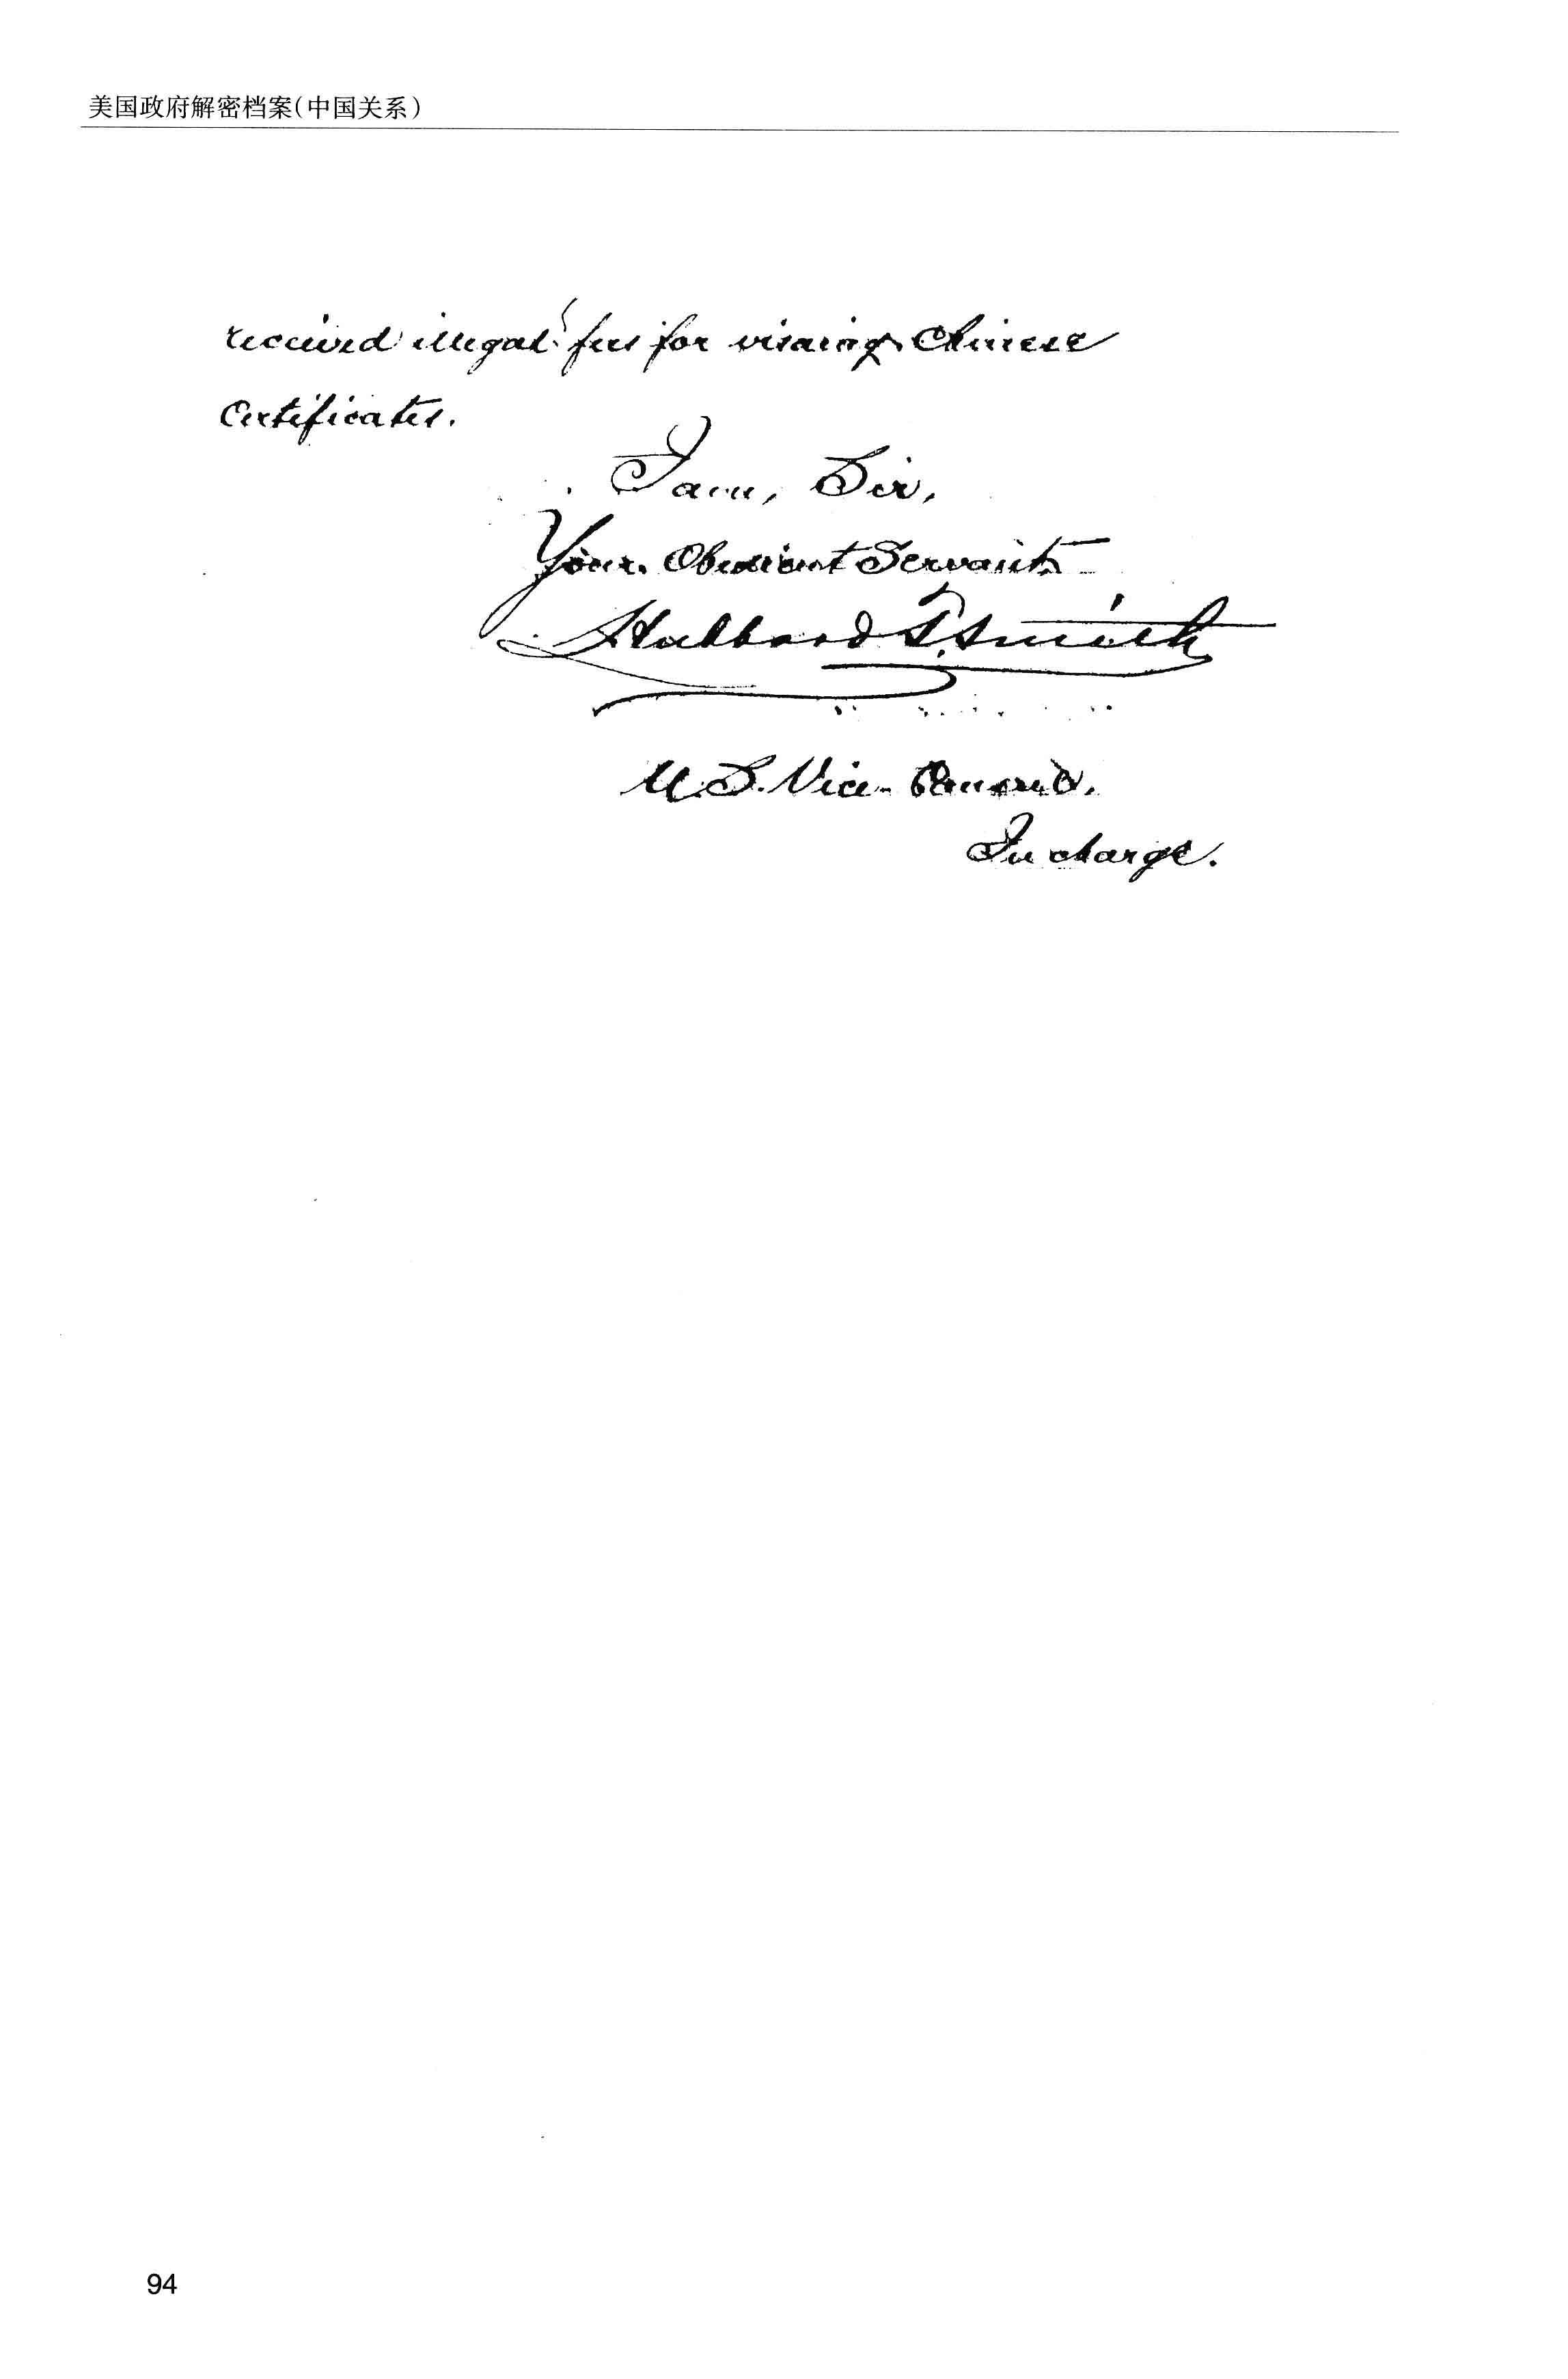 美国政府解密档案(中国关系)
received illegal fees for visaing Chinese
Certificates.
I am, Sir,
Your Obedient Servant
Hubbard T. Smith
U.S. Vice-Consul,
In charge.
94